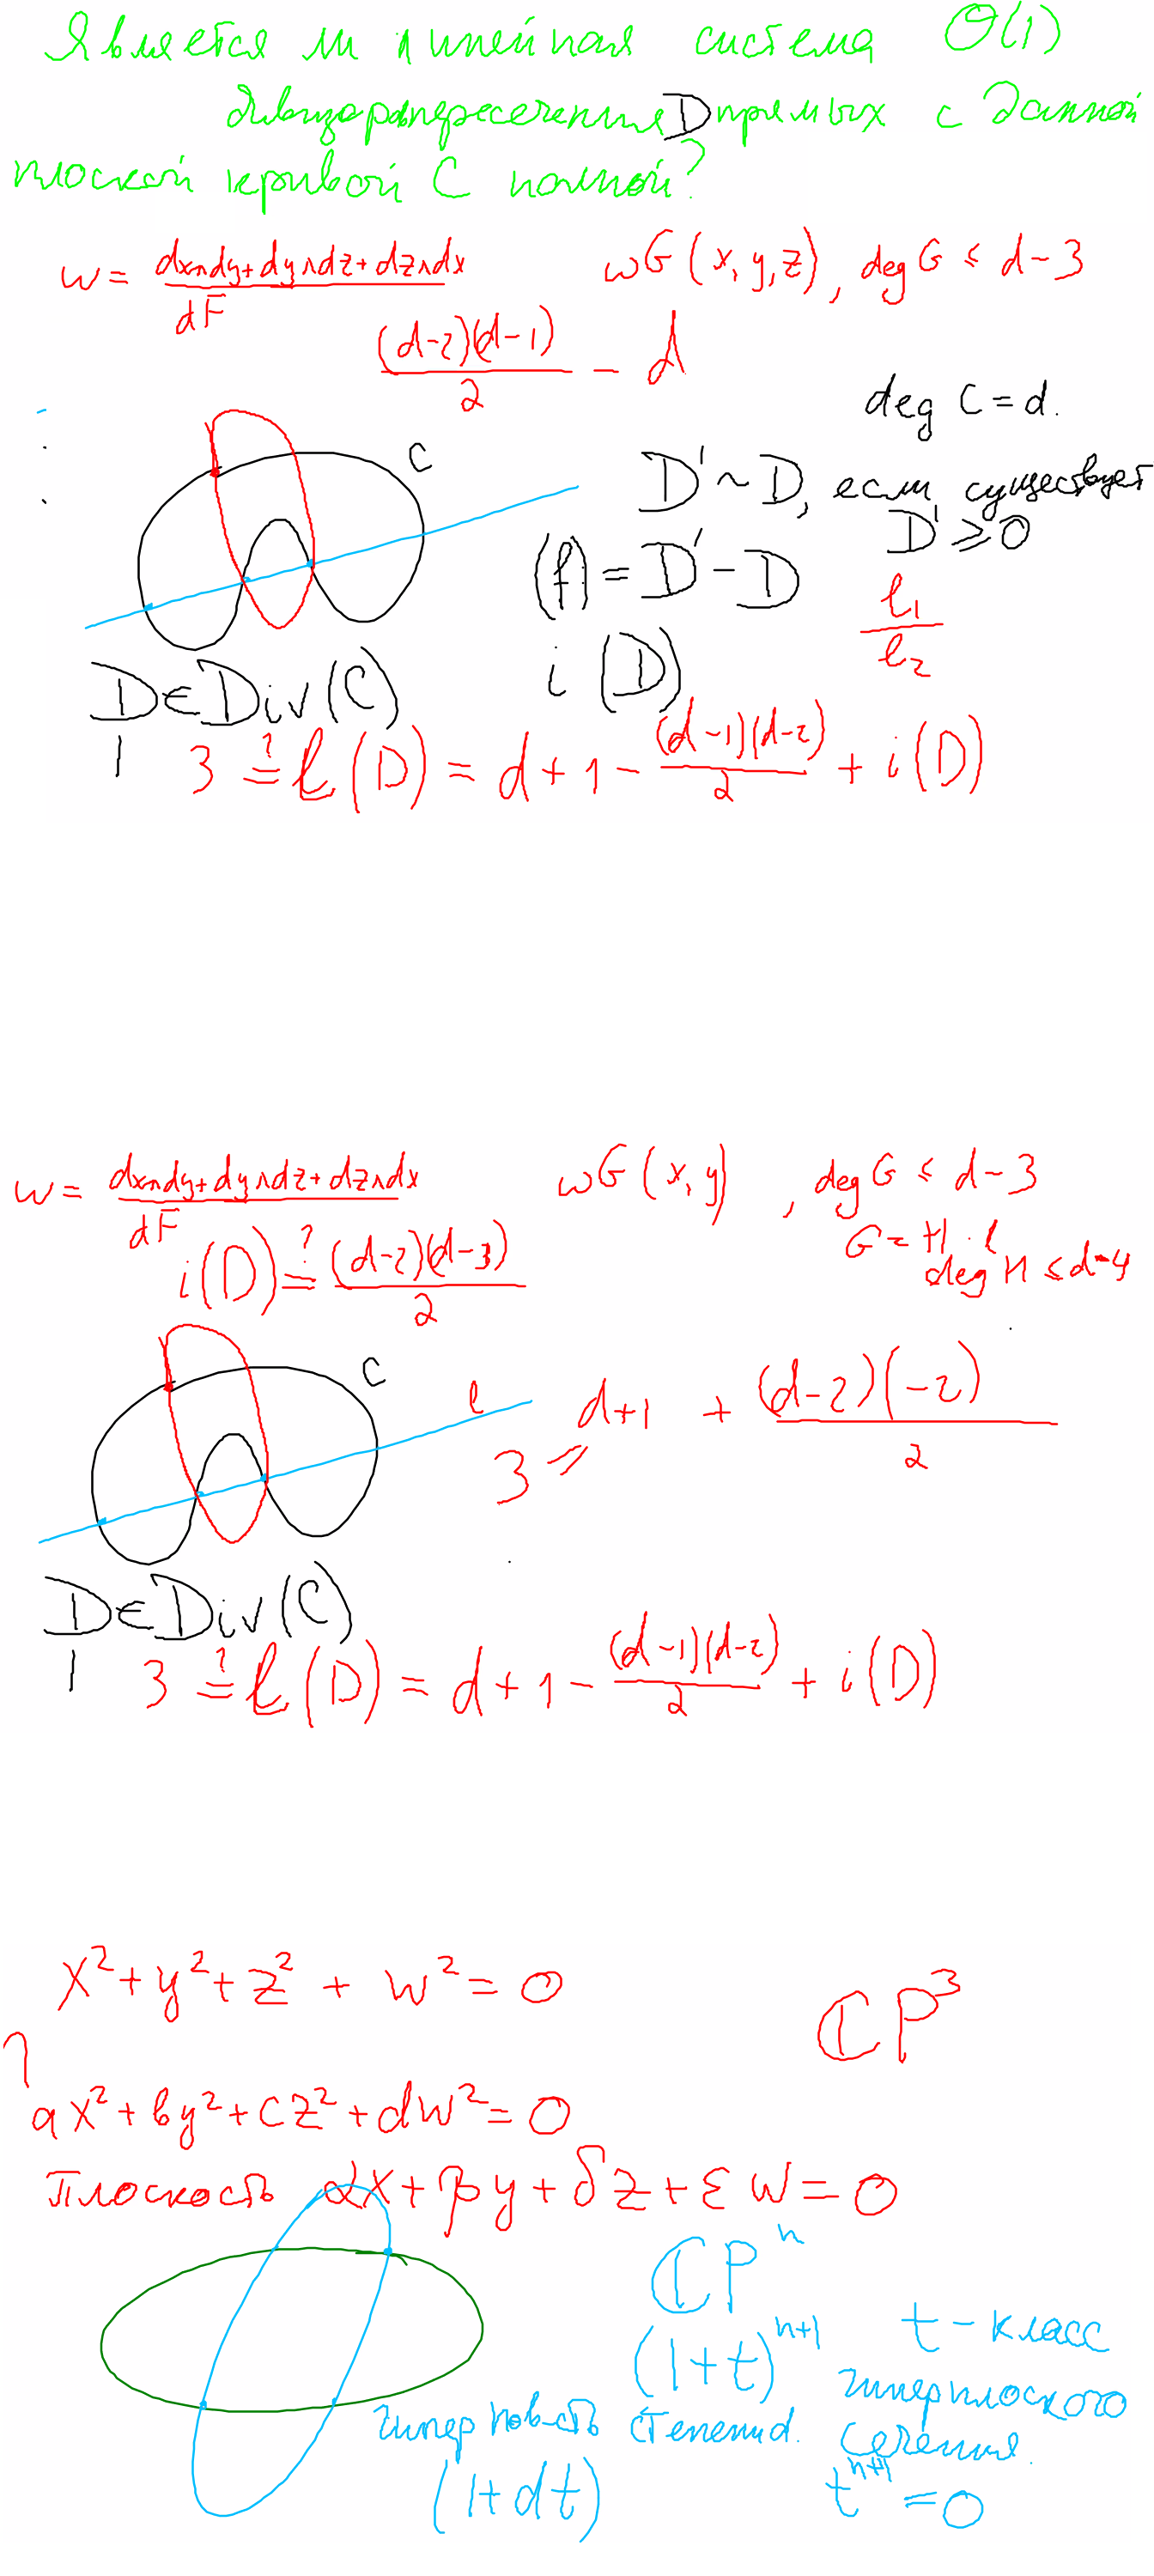 Является ли линейная система O(1)
дивизоров пересечения D прямых с данной
плоской кривой C полной?
w = (dx∧dy + dy∧dz + dz∧dx)/dF    wG(x,y,z), deg G ≤ d-3
(d-2)(d-1)/2 - d
deg C = d.
C
D' ~ D, если существует
D' ≥ 0
(f) = D' - D
l₁/l₂
i(D)
D ∈ Div(C)
1
3 =? l(D) = d+1 - (d-1)(d-2)/2 + i(D)
w = (dx∧dy + dy∧dz + dz∧dx)/dF    wG(x,y) , deg G ≤ d-3
G = H·l
deg H ≤ d-4
i(D) =? (d-2)(d-3)/2
C
l
3 = d+1 + (d-2)(-2)/2
D ∈ Div(C)
1
3 =? l(D) = d+1 - (d-1)(d-2)/2 + i(D)
x² + y² + z² + w² = 0
CP³
ax² + by² + cz² + dw² = 0
Плоскость αx + βy + δz + εw = 0
CPⁿ
(1+t)ⁿ⁺¹
t - класс
гиперплоского
сечения.
гиперпов-сть степени d.
(1+dt)
tⁿ⁺¹ = 0